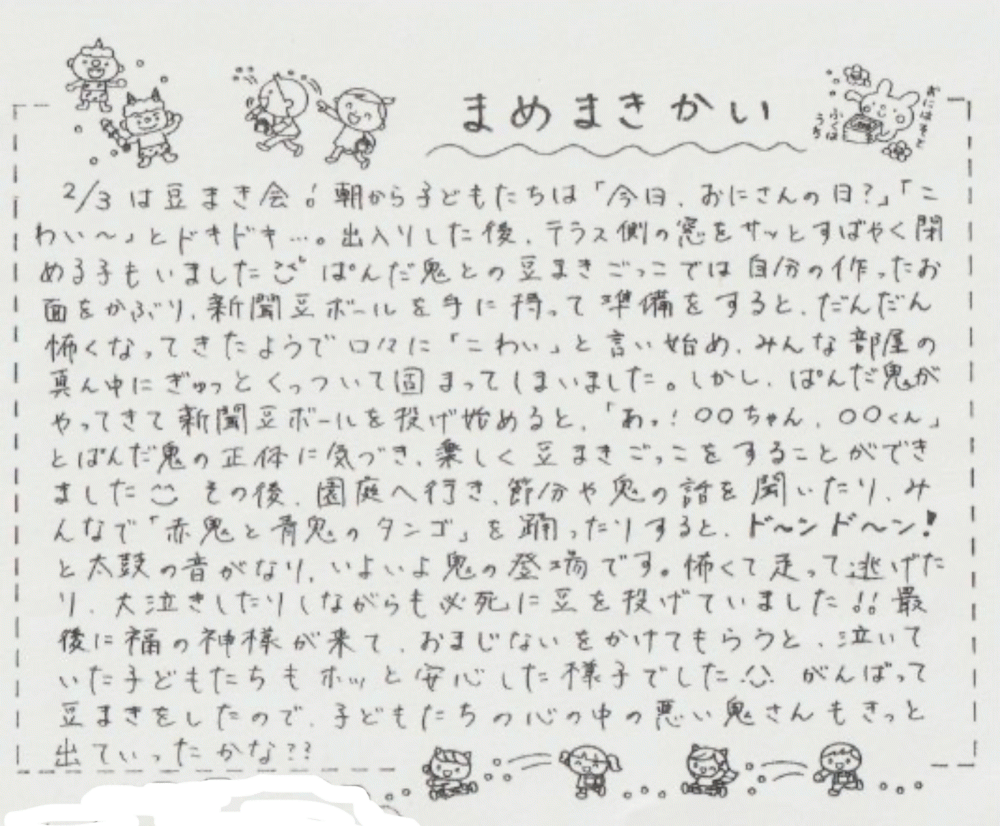 まめまきかい
おにはそと
ふくは
うち
2/3は豆まき会！朝から子どもたちは「今日、おにさんの日？」「こ
わい〜」とドキドキ…。出入りした後、テラス側の窓をサッとすばやく閉
める子もいました ぱんだ鬼との豆まきごっこでは自分の作ったお
面をかぶり、新聞豆ボールを手に持って準備をすると、だんだん
怖くなってきたようで口々に「こわい」と言い始め、みんな部屋の
真ん中にぎゅっとくっついて固まってしまいました。しかし、ぱんだ鬼が
やってきて新聞豆ボールを投げ始めると、「あっ！○○ちゃん、○○くん」
とぱんだ鬼の正体に気づき、楽しく豆まきごっこをすることができ
ました その後、園庭へ行き、節分や鬼の話を聞いたり、み
んなで「赤鬼と青鬼のタンゴ」を踊ったりすると、ド〜ンド〜ン！
と太鼓の音がなり、いよいよ鬼の登場です。怖くて走って逃げた
り、大泣きしたりしながらも必死に豆を投げていました!! 最
後に福の神様が来て、おまじないをかけてもらうと、泣いて
いた子どもたちもホッと安心した様子でした がんばって
豆まきをしたので、子どもたちの心の中の悪い鬼さんもきっと
出ていったかな??